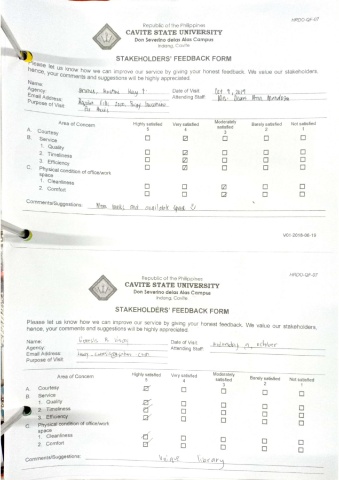 HRDO-QF-07
Republic of the Philippines
CAVITE STATE UNIVERSITY
Don Severino delas Alas Campus
Indang, Cavite
STAKEHOLDERS' FEEDBACK FORM
Please let us know how we can improve our service by giving your honest feedback. We value our stakeholders,
hence, your comments and suggestions will be highly appreciated.
Name:
Agency: Date of Visit: Oct 9, 2019
Email Address: Attending Staff:
Purpose of Visit:
Area of Concern Highly satisfied 5 Very satisfied 4 Moderately satisfied 3 Barely satisfied 2 Not satisfied 1
A. Courtesy
B. Service
1. Quality
2. Timeliness
3. Efficiency
C. Physical condition of office/work
space
1. Cleanliness
2. Comfort
Comments/Suggestions: More books and available space
V01-2018-06-19
HRDO-QF-07
Republic of the Philippines
CAVITE STATE UNIVERSITY
Don Severino delas Alas Campus
Indang, Cavite
STAKEHOLDERS' FEEDBACK FORM
Please let us know how we can improve our service by giving your honest feedback. We value our stakeholders,
hence, your comments and suggestions will be highly appreciated.
Name:
Agency: Date of Visit: october
Email Address: Attending Staff:
Purpose of Visit:
Area of Concern Highly satisfied 5 Very satisfied 4 Moderately satisfied 3 Barely satisfied 2 Not satisfied 1
A. Courtesy
B. Service
1. Quality
2. Timeliness
3. Efficiency
C. Physical condition of office/work
space
1. Cleanliness
2. Comfort
Comments/Suggestions: library